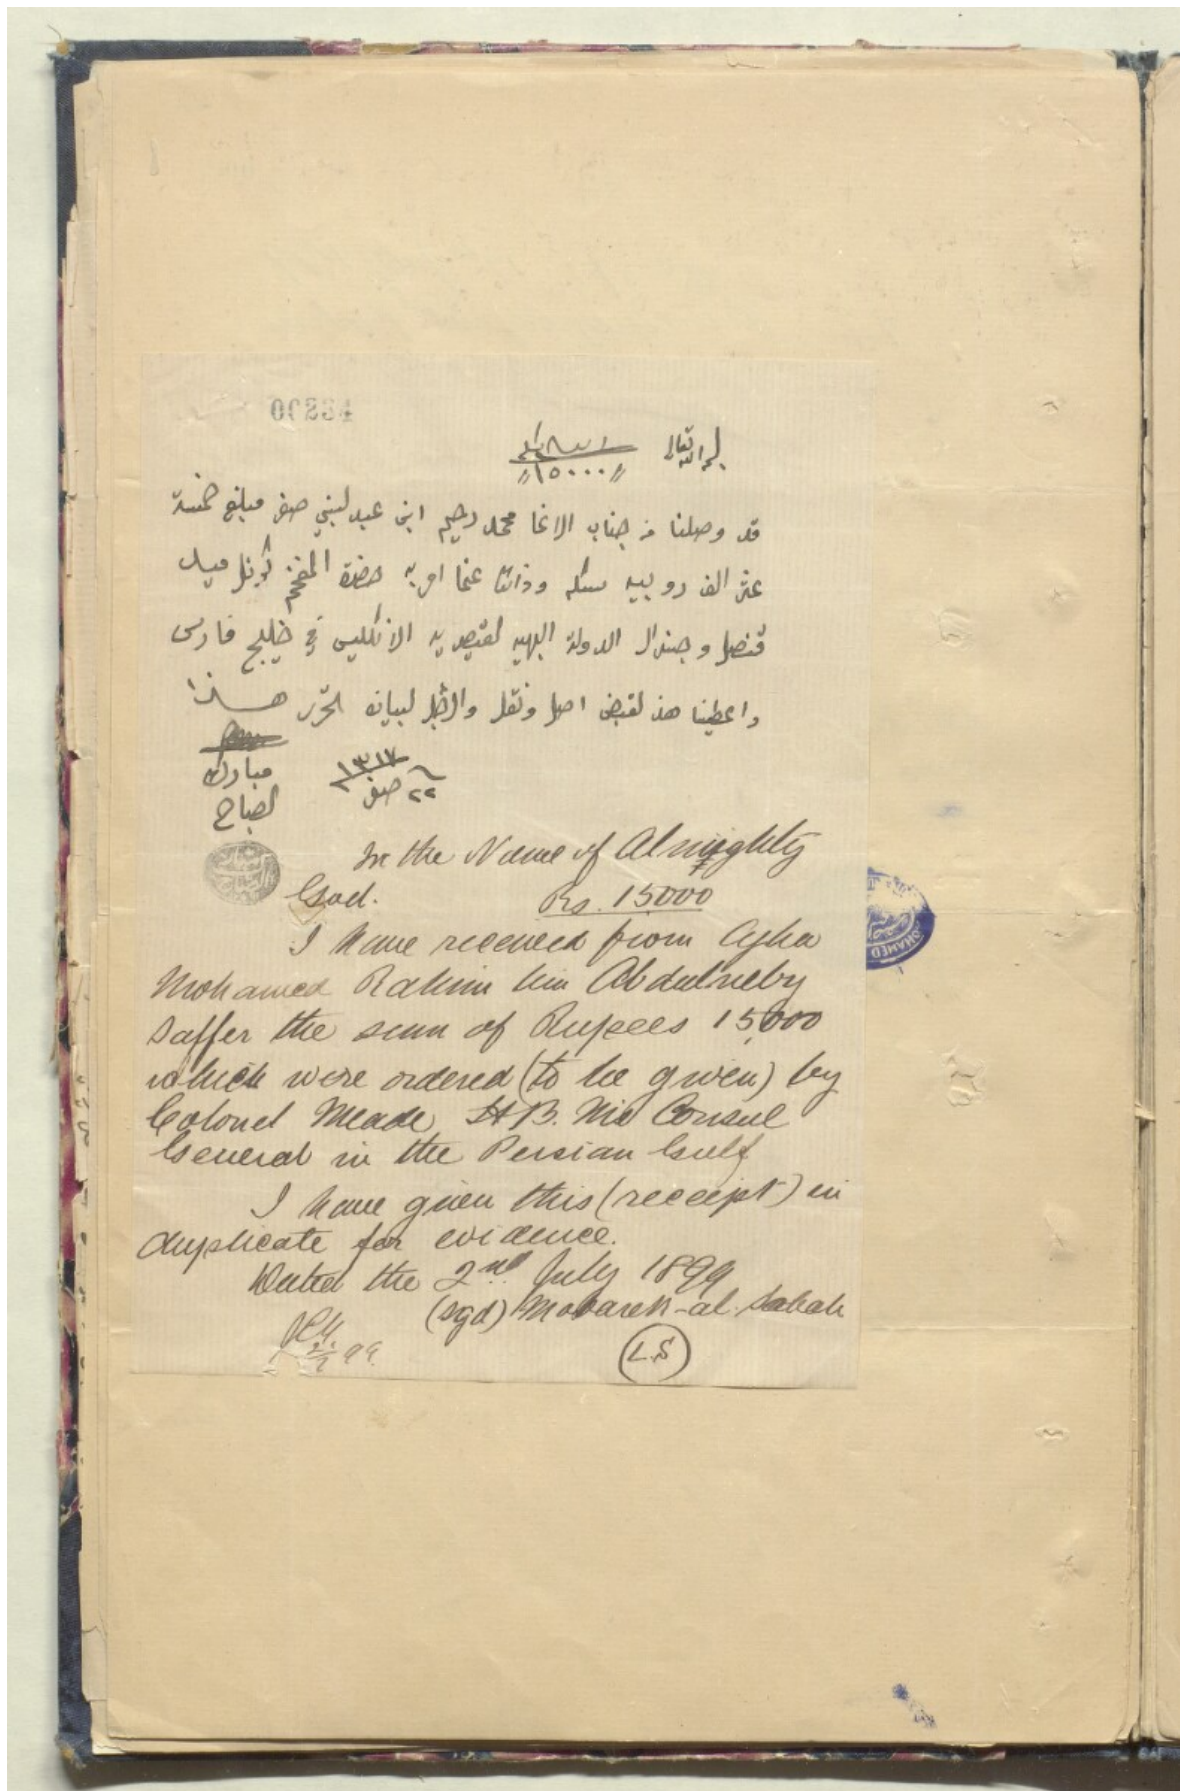 بسم الله تعالى
١٥٠٠٠
قد وصلنا من جناب الاغا محمد رحيم ابن عبد لنبي صفر مبلغ خمسة
عشر الف روبيه سكه وذالك عما امر به حضرة المفخم كرنل ميد
قنصل وجنرال الدولة البهيه لقيصريه الانكليس في خليج فارس
واعطينا هذ لقبض اصل ونقل والاجل لبيان تحرر هذا
٢٢ صفر ١٣١٧
مبارك
لصباح
In the Name of Almighty
God. Rs. 15000
I have received from Agha
Mohamed Rahim bin Abdulneby
Saffer the sum of Rupees 15,000
which were ordered (to be given) by
Colonel Meade H.B. M's Consul
General in the Persian Gulf
I have given this (receipt) in
duplicate for evidence.
Dated the 2nd July 1899
(sgd) Mobarek-al-Sabah
L.S